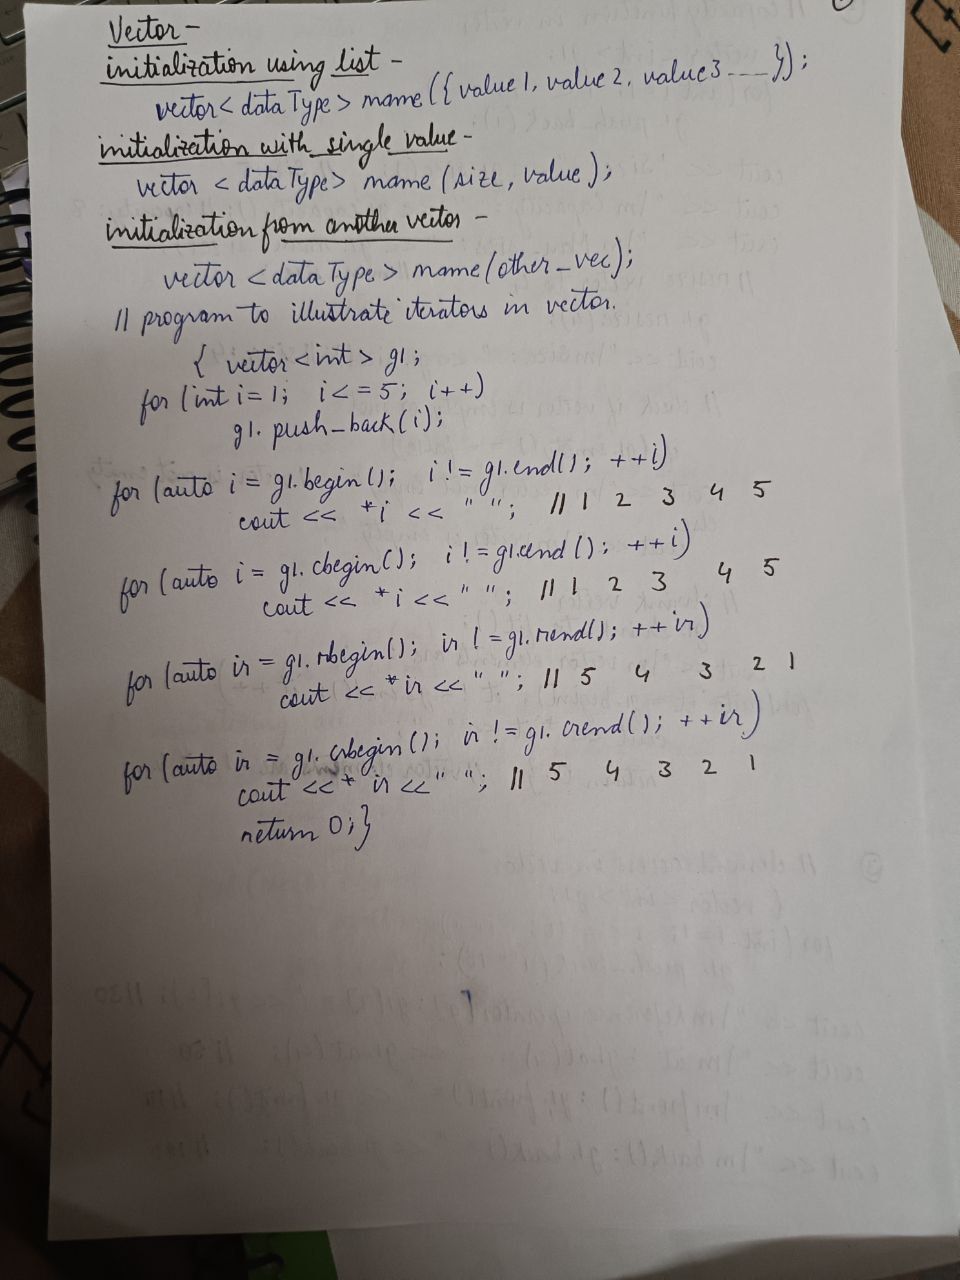 Vector -
initialization using list -
vector< dataType > name ({value 1, value 2, value3 ----- });
initialization with single value -
vector < dataType > name (size, value );
initialization from another vector -
vector < dataType > name (other_vec);
// program to illustrate iterators in vector.
{ vector <int > g1;
for (int i = 1; i < = 5; i ++)
g1. push_back (i);
for (auto i = g1.begin(); i != g1.end(); ++i)
cout << *i << " "; // 1 2 3 4 5
for (auto i = g1. cbegin(); i != g1.cend(); ++i)
cout << *i << " "; // 1 2 3 4 5
for (auto ir = g1. rbegin(); ir != g1.rend(); ++ir)
cout << *ir << " "; // 5 4 3 2 1
for (auto ir = g1. crbegin(); ir != g1. crend(); ++ir)
cout << * ir << " "; // 5 4 3 2 1
return 0;}